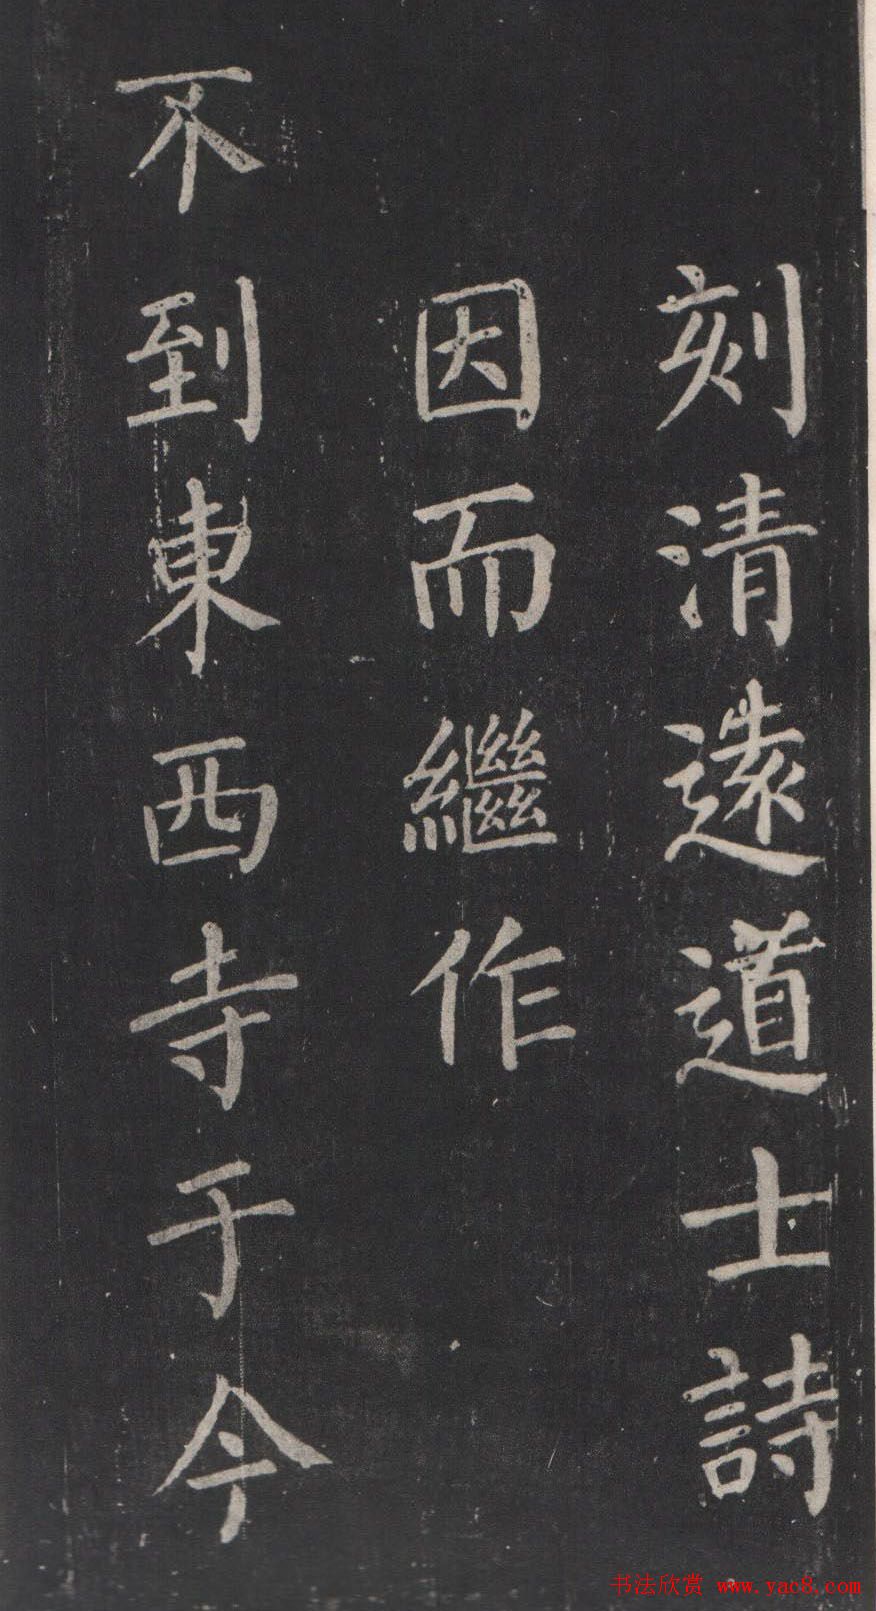 刻清遠道士詩
因而繼作
不到東西寺于今
书法欣赏 www.yac8.com